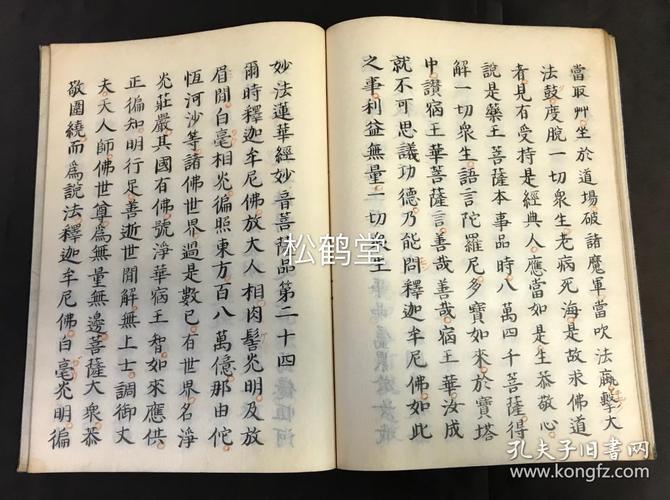 當取艸坐於道場破諸魔軍當吹法蠃擊大
法鼓度脫一切衆生老病死海是故求佛道
者見有受持是經典人應當如是生恭敬心
說是藥王菩薩本事品時八萬四千菩薩得
解一切衆生語言陀羅尼多寶如來於寶塔
中讚宿王華菩薩言善哉善哉宿王華汝成
就不可思議功德乃能問釋迦牟尼佛如此
之事利益無量一切衆生
妙法蓮華經妙音菩薩品第二十四
爾時釋迦牟尼佛放大人相肉髻光明及放
眉間白毫相光徧照東方百八萬億那由佗
恆河沙等諸佛世界過是數已有世界名淨
光莊嚴其國有佛號淨華宿王智如來應供
正徧知明行足善逝世間解無上士調御丈
夫天人師佛世尊爲無量無邊菩薩大衆恭
敬圍繞而爲說法釋迦牟尼佛白毫光明徧
松鹤堂
孔夫子旧书网
www.kongfz.com